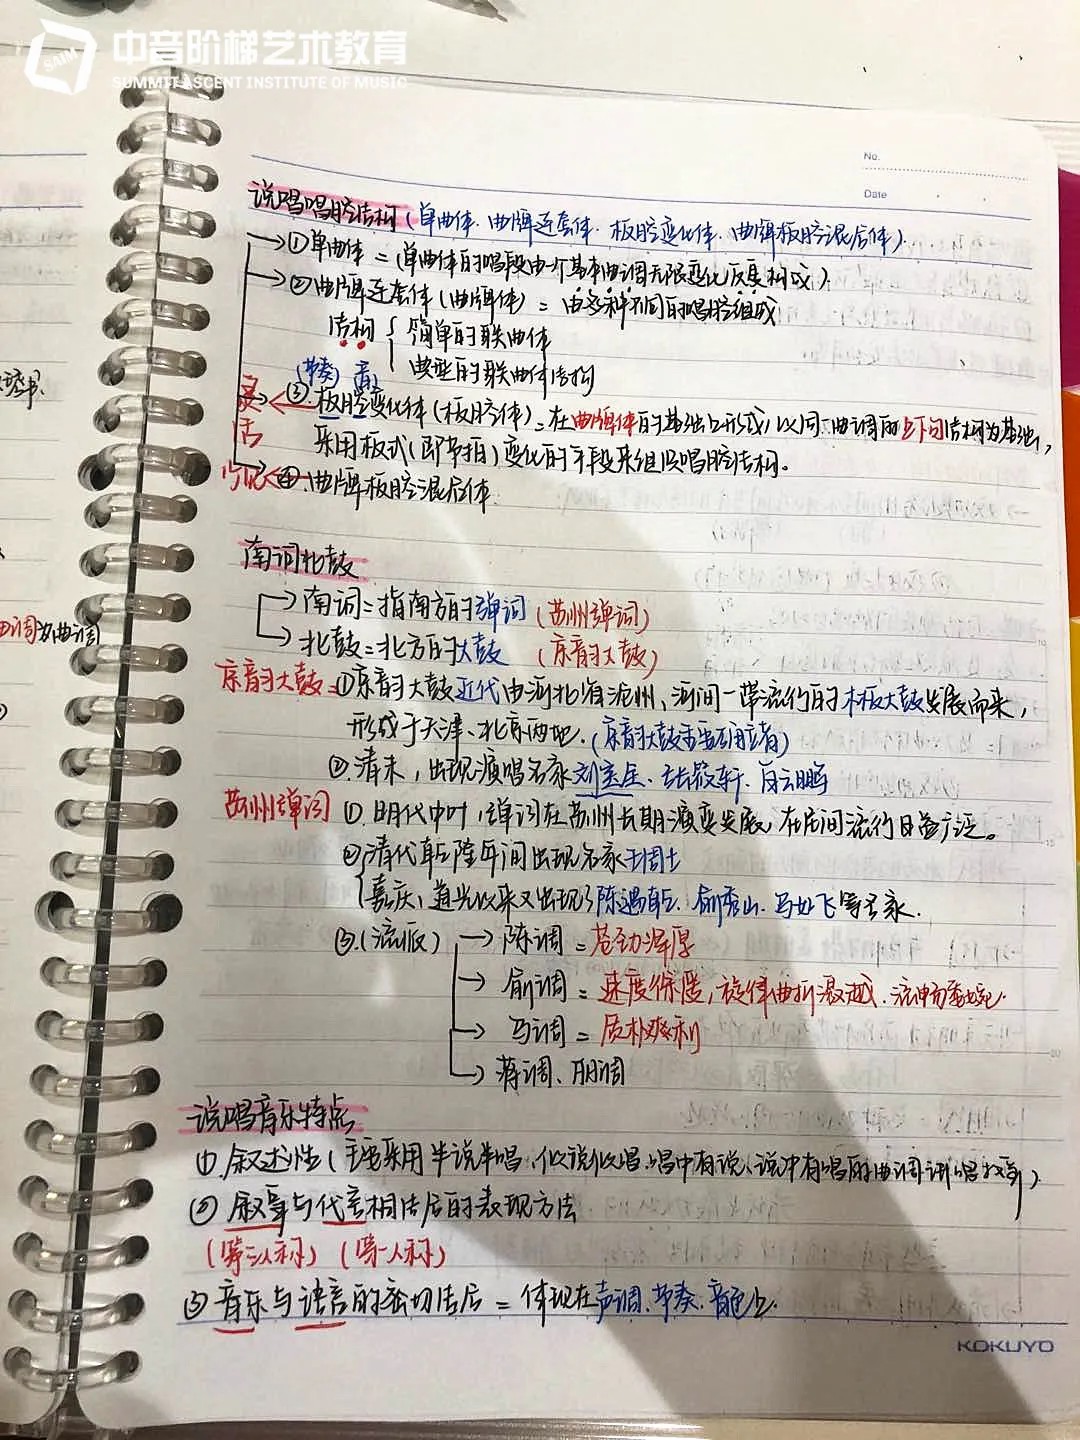 中音阶梯艺术教育
SUMMIT ASCENT INSTITUTE OF MUSIC
SAIM
No.
Date
说唱唱腔结构(单曲体、曲牌连套体、板腔变化体、曲牌板腔混合体).
→①单曲体 = (单曲体的唱段由一个基本曲调无限变化反复构成)
→②曲牌连套体(曲牌体) = 由多种不同的唱腔组成
结构 { 简单的联曲体
典型的联曲体结构
(节奏) 音
灵活 ← ③.板腔变化体(板腔体) = 在曲牌体的基础上形成,以同一曲调的上下句结构为基础,
采用板式(即节拍)变化的手段来组织唱腔结构。
④.曲牌板腔混合体.
南词北鼓
→南词=指南方的弹词(苏州弹词)
→北鼓=北方的大鼓 (京韵大鼓)
京韵大鼓=①京韵大鼓近代由河北省沧州、河间一带流行的木板大鼓发展而来,
形成于天津、北京两地.(京韵大鼓
②.清末,出现演唱名家刘宝全、张筱轩、白云鹏
苏州弹词 ①.明代中叶,弹词在苏州长期演变发展,在民间流行日益广泛。
②清代乾隆年间出现名家王周士
嘉庆、道光以来又出现了陈遇乾、俞秀山、马如飞等名家.
③.(流派) → 陈调 = 苍劲浑厚
→ 俞调 = 速度徐缓,旋律曲折激越、流畅委婉.
→ 马调 = 质朴爽利
→ 蒋调、丽调
说唱音乐特点
①.叙述性(主要采用半说半唱、似说似唱、唱中有说、说中有唱的曲调讲唱故事)
② 叙事与代言相结合的表现方法
(第三人称) (第一人称)
③ 音乐与语言的密切结合 = 体现在声调、节奏、音色上.
KOKUYO